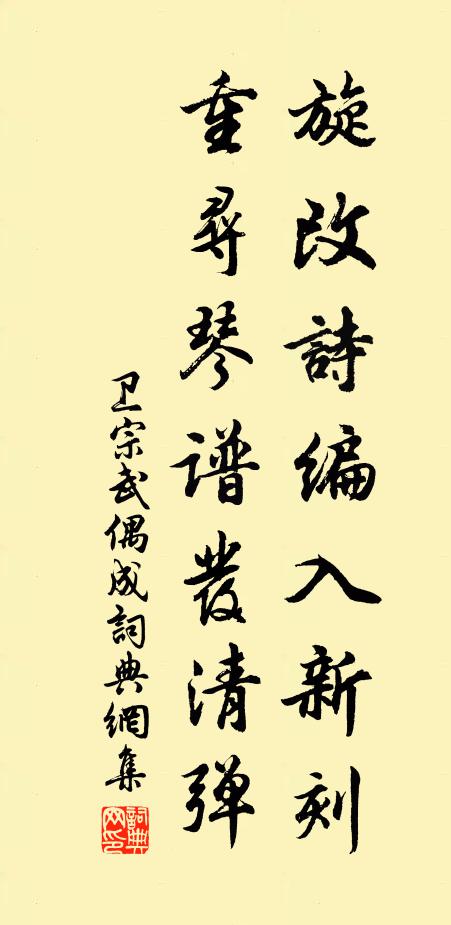 旋改詩编入新刻
重尋琴谱發清弹
卫宗武偶成詞典網集
詞典网印